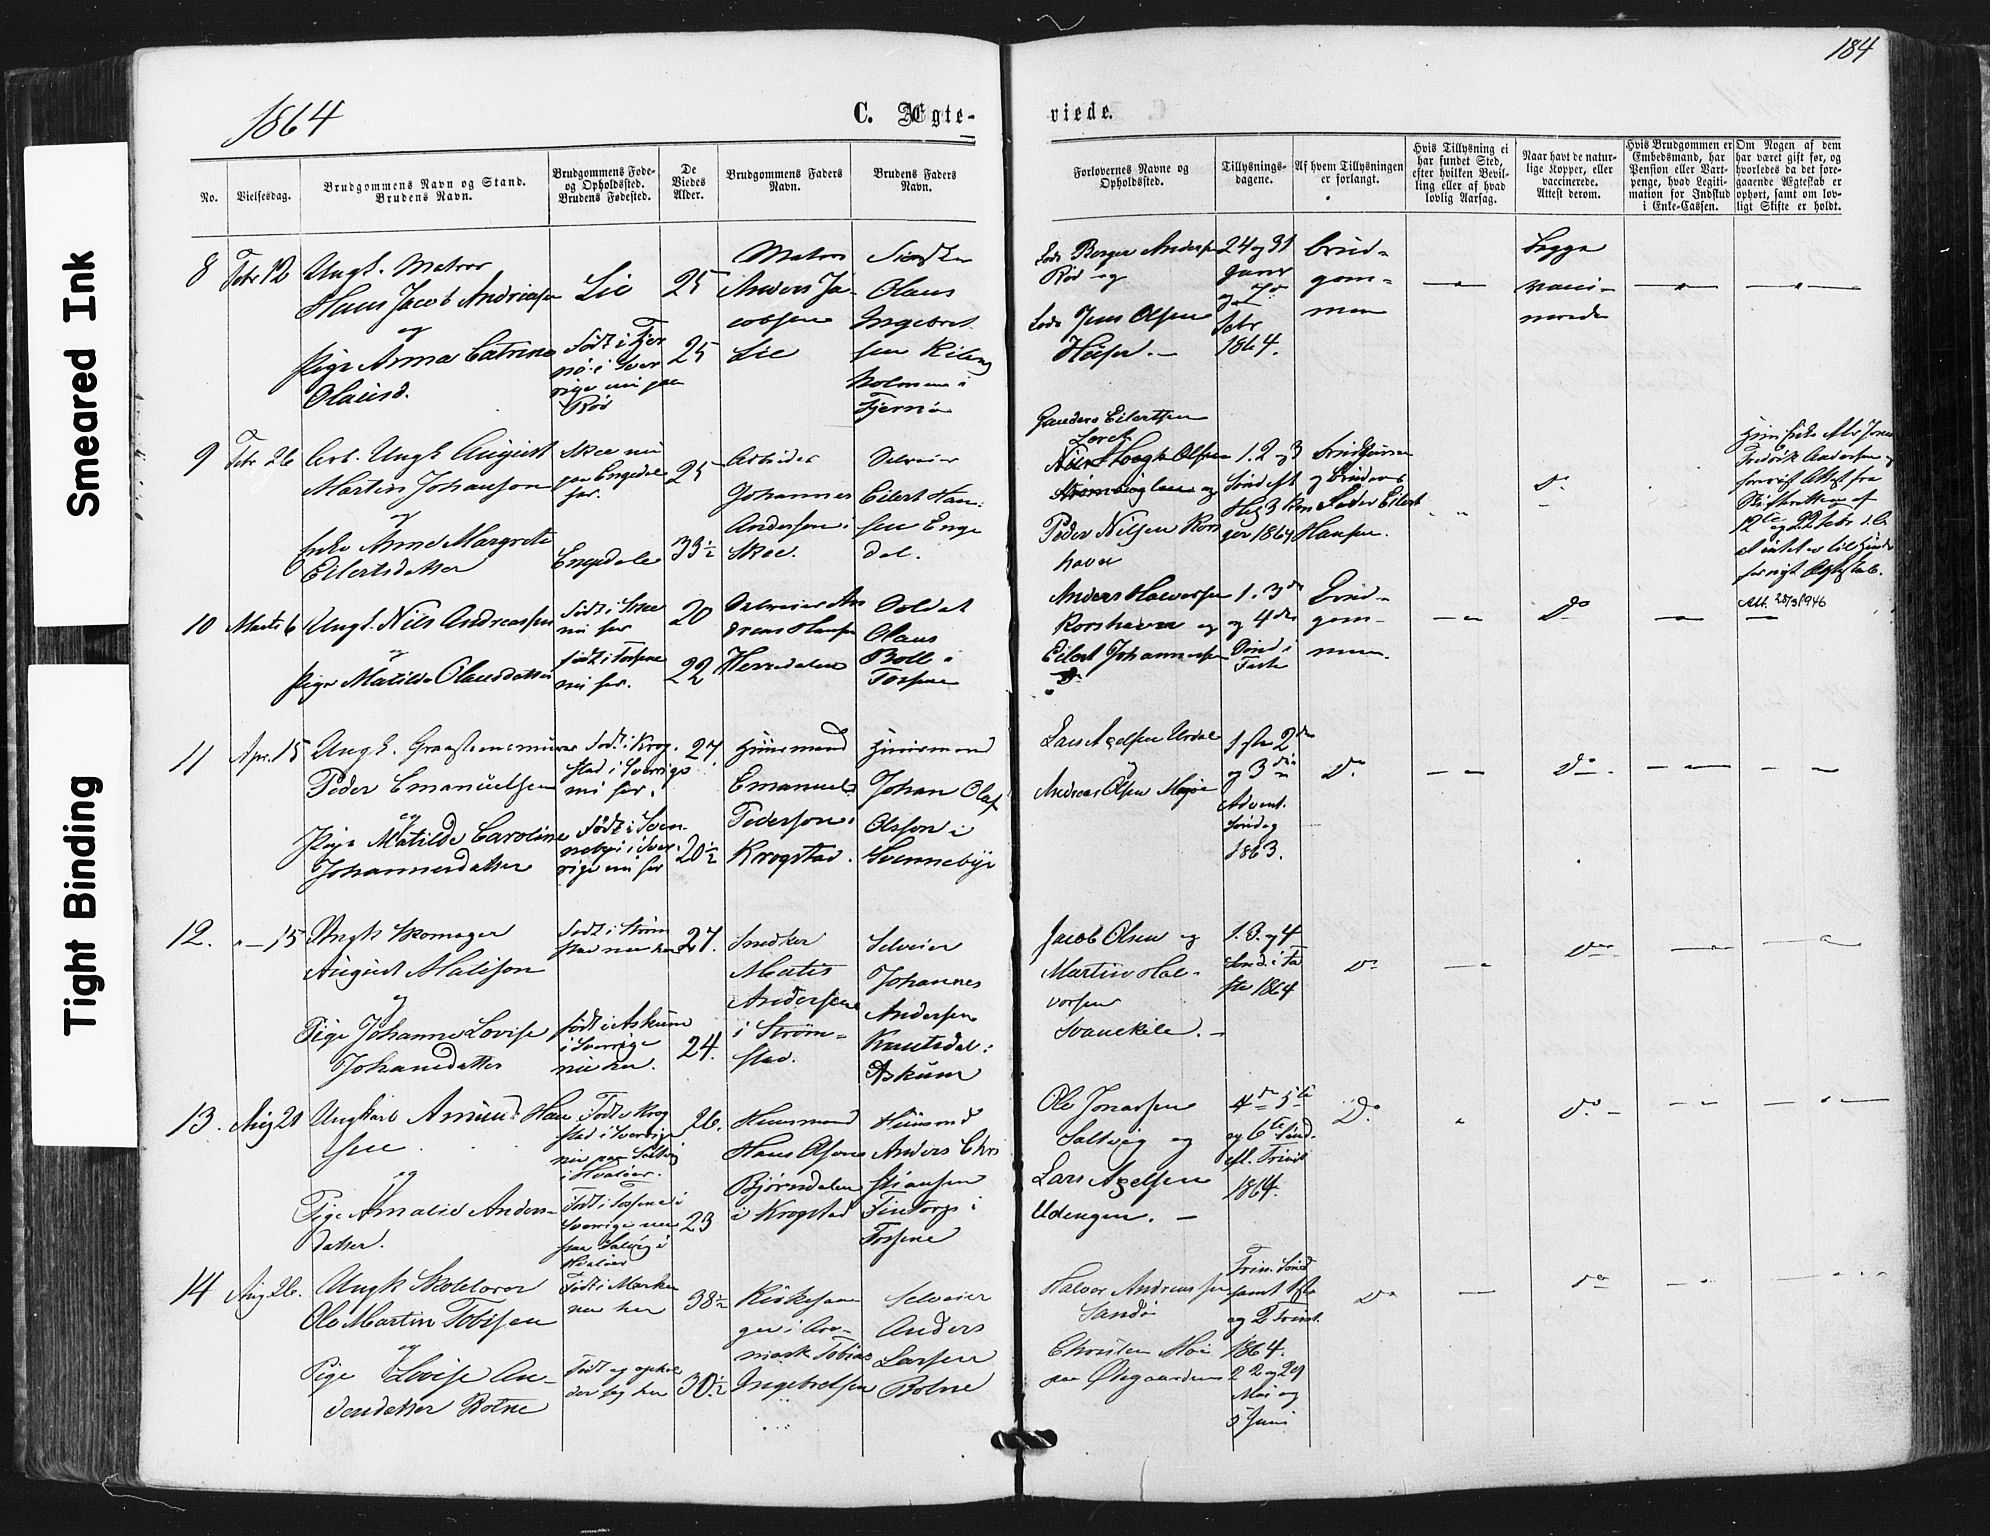 184
1864
C. Ægte-
viede.
Smeared Ink
Tight Binding
No.
Vielsesdag.
Brudgommens Navn og Stand.
Brudens Navn.
Brudgommens Føde-
og Opholdssted.
Brudens Fødested.
De
Viedes
Alder.
Brudgommens Faders
Navn.
Brudens Faders
Navn.
Forlovernes Navne og
Opholdssted.
Tillysnings-
dagene.
Af hvem Tillysningen
er forlangt.
Hvis Tillysning ei
har fundet Sted,
efter hvilken Bevil-
ling eller af hvad
lovlig Aarsag.
Naar havt de natur-
lige Kopper, eller
vaccinerede.
Attest derom.
Hvis Brudgommen er
Embedsmand, har
Pension eller Vart-
penge, hvad Legiti-
mation for Indskud
i Enke-Cassen.
Om Nogen af dem
har været gift før, og
hvorledes da det fore-
gaaende Ægteskab er
ophørt, samt om lov-
ligt Skifte er holdt.
8 Febr 12 Ungk. Matros
Hans Jacob Andreasen
og
Pige Anna Catrine
Olausd.
Lie
født i Tjer
nø i Sver
rige nu paa
Rød
25
25
Matros
Anders Ja-
cobsen
Lie
Olaus
Ingebret
sen
holmene i
Tjernø
Lods Borger Andersen
Rød og
Lods Jens Olsen
Huser. —
24 og 31
Janr
og 7de
Febr
1864.
Brud-
gom-
men
Begge
vacci-
nerede
9 Febr 26 Arb. Ungk August
Martin Johanson
og
Enke Anne Margrete
Eilertsdatter
Skee nu
paa Engedal
her.
Engedale
25
33½
Arbeider
Johannes
Anderson i
Skee.
Selveier
Eilert Han-
sen Enge
dal.
Eilertsen
Olsen
og
Peder Nilsen Kors
havn
1. 2 og 3
Brudgommen
og Brudens
Fader Eilert
Hansen.
Do
Fredrik Andersen
Att. 28/3 1946
10 Marts 6 Ungk. Niils Andreassen
og
Pige Matilde Olausdatter
født i Skee
nu her
født i Tossene
nu her.
20
22
Selveier An
dreas Hansen
Herredalen
Soldat
Olaus
Boll i
Tossene
Anders Halvorsen
Korshavn og
Eilert Johannessen
Do
1. 3die
og 4de
Sønd i
Faste
Brud-
gom-
men.
Do
11 Apr. 15 Ungk. Graasteensmurer
Peder Emanuelsen
og
Pige Matilde Caroline
Johannesdatter
født i Krog-
stad i Sverrige
nu her.
Født i Sven-
nebye i Sver-
rige nu her
27.
20½
Huusmand
Emanuel
Pederson i
Krogstad.
Huusmand
Johan Olaf
Olsson i
Svennebye
Lars Axelsen Urdal
og
Andreas Olsen
1ste 2den
og 3die
Advent.
Søndag
1863.
Do
Do
12. " — 15 Ungk Skomager
August Matison
og
Pige Johanne Lovise
Johansdatter
født i Strøm
stad nu her
født i Askum
i Sverrige
nu her.
27.
24.
Snedker
Mattis
Andersen
i Strøm-
stad.
Selveier
Johannes
Andersen
i
Askum
Jacob Olsen og
Martin Hal-
vorsen
Svanekile. —
1. 3. og 4
Sønd. i Fa
ste 1864
Do
Do
13. Aug 21 Ungkarl Amund Han
sen
og
Pige Amalie Anders-
datter.
Født i Krog
stad i Sverrige
nu paa
i Hvaløer.
født i Tossene i
Sverrige nu
paa
Hvaløer
26.
23
Huusmand
Hans Olsen
Bjørndalen
i Krogstad
Huusmd
Anders Chri
stiansen
Fintorp i
Tossene
Ole Jonassen
Saltvig og
Lars Axelsen
Udengen. —
4de 5te
og 6te Sønd.
eft. Trinit
1864.
Do
Do
14 Aug 26. Ungk Skolelærer
Ole Martin Tobisen
og
Pige Lovise An-
dersdatter Botne
Født i Marker
nu her
Født og ophol
der sig her
38½
30½
Kirkesan
ger i Are-
mark Tobias
Ingebretsen
Selveier
Anders
Larsen
Botne
Halvor Andreassen
Sandø
Christen
paa Ødegaarden
Trin. Sønd
samt 1ste
og 2 Trinit.
1864.
22 og 29
Mai og
5 Juni
Do
Do